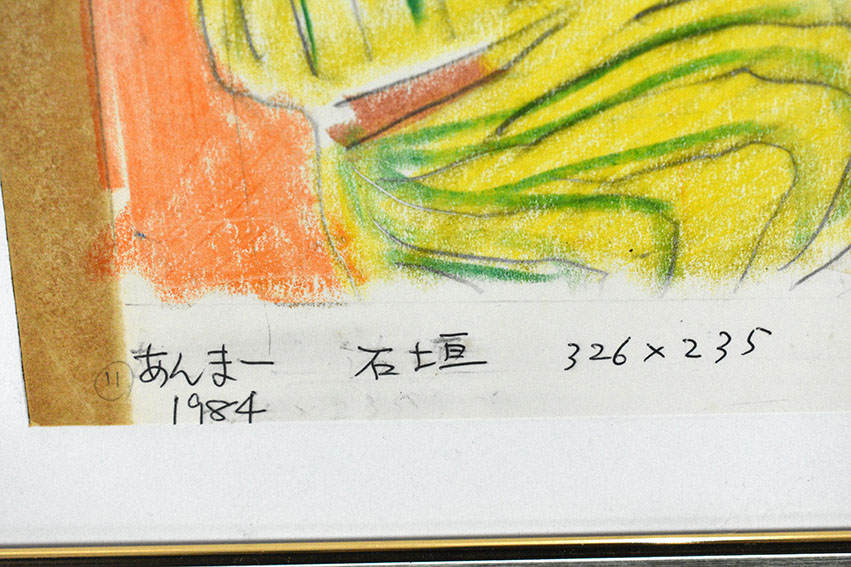 ⑪ あんまー 石垣 326×235
1984